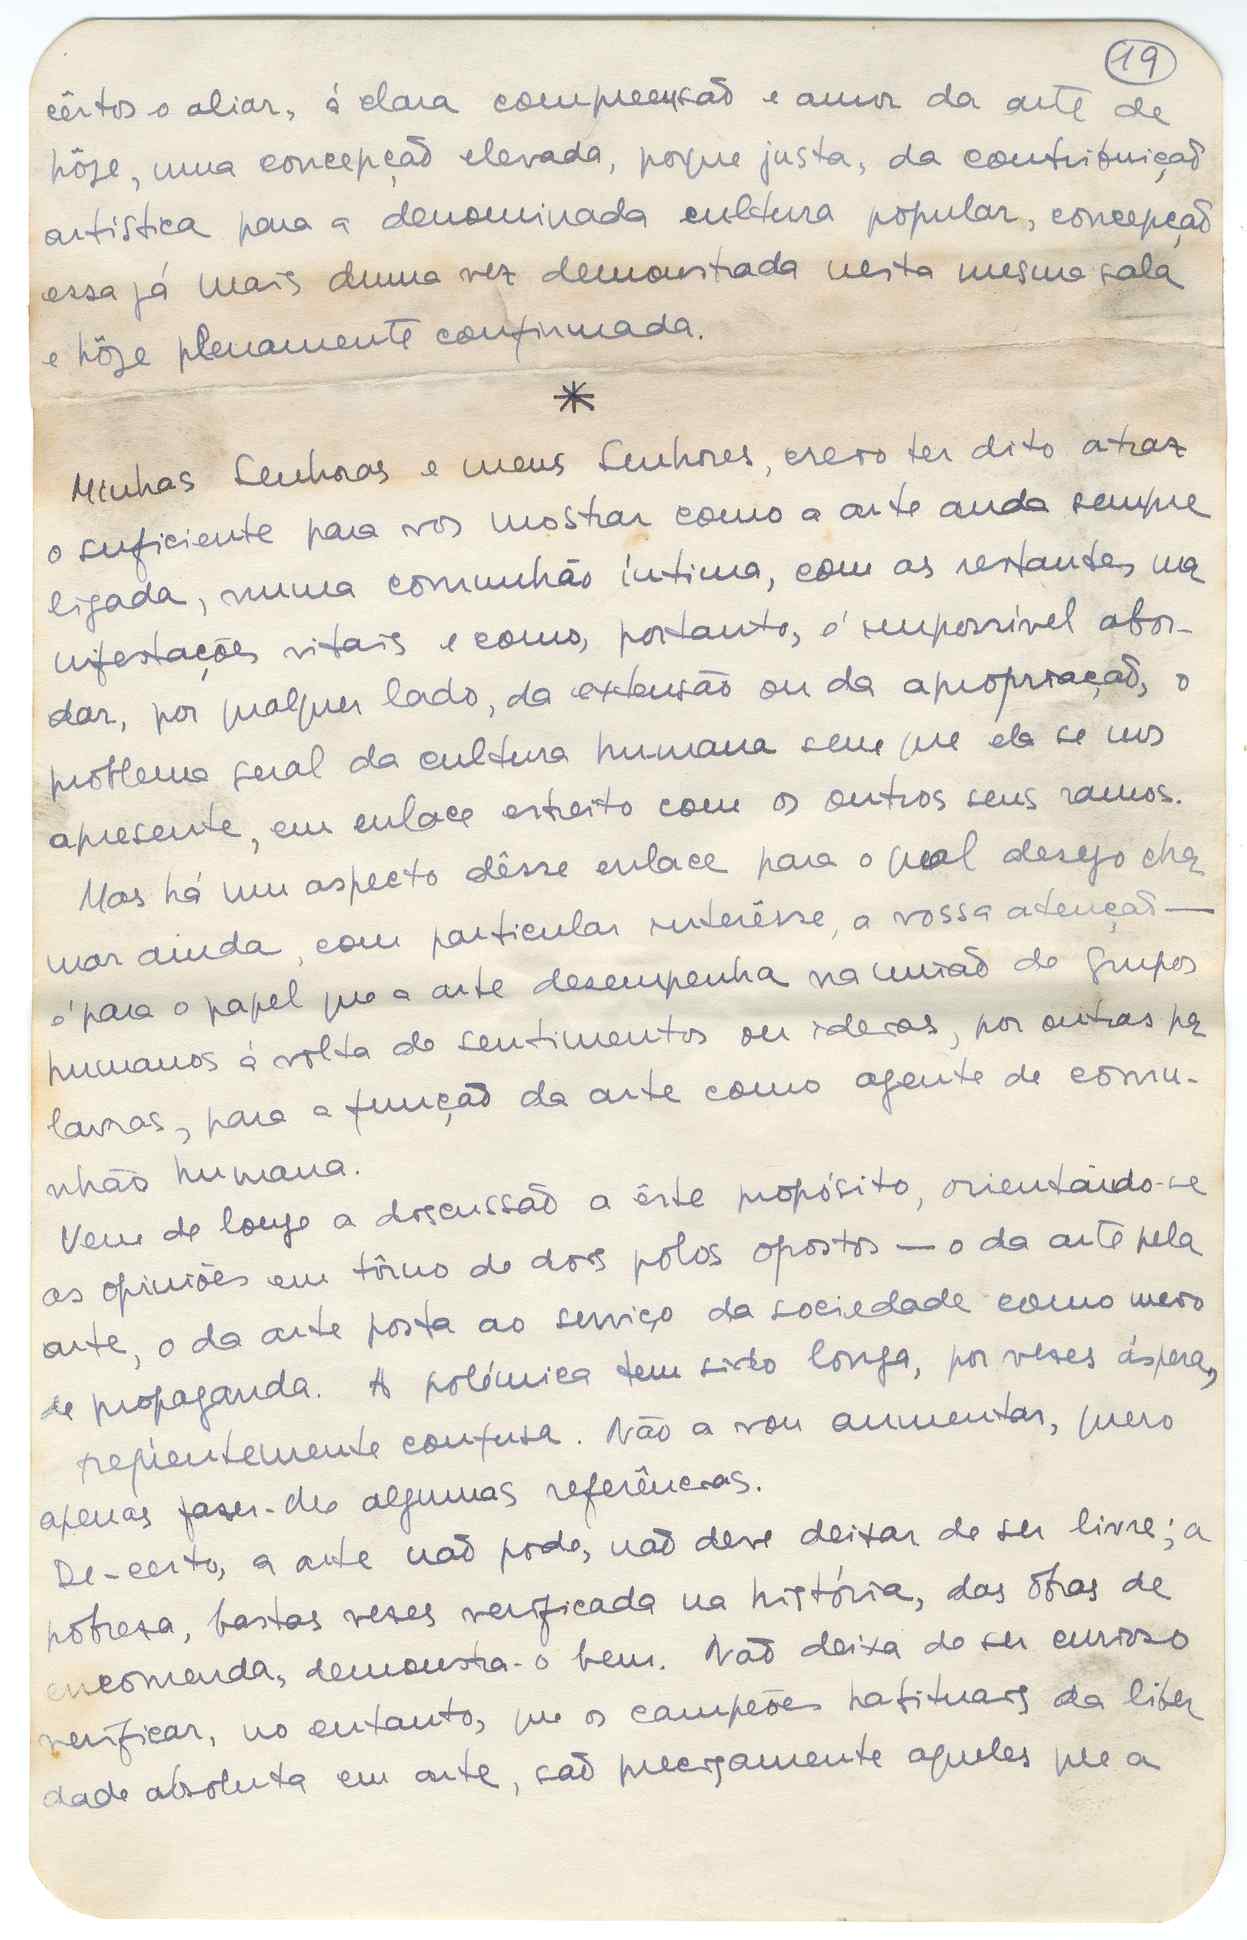 19
cêrtos o aliar, á clara compreensão e amor da arte de
hôje, uma concepção elevada, porque justa, da contribuição
artística para a denominada cultura popular, concepção
essa já mais duma vez demonstrada nesta mesma sala
e hôje plenamente confirmada.
*
Minhas Senhoras e meus Senhores, creio ter dito atraz
o suficiente para vos mostrar como a arte anda sempre
ligada, numa comunhão íntima, com as restantes ma
nifestações vitais e como, portanto, é impossível abor-
dar, por qualquer lado, da extensão ou da apropriação, o
problema geral da cultura humana sem que ela se nos
apresente, em enlace estreito com os outros seus ramos.
Mas há um aspecto dêsse enlace para o qual desejo cha
mar ainda, com particular interêsse, a vossa atenção —
é para o papel que a arte desempenha na união de grupos
humanos á volta de sentimentos ou ideias, por outras pa
lavras, para a função da arte como agente de comu-
nhão humana.
Vem de longe a discussão a êste propósito, orientando-se
as opiniões em tôrno de dois pólos opostos — o da arte pela
arte, o da arte posta ao serviço da sociedade como mero
de propaganda. A polémica tem sido longa, por vezes áspera,
frequentemente confusa. Não a vou aumentar, quero
apenas fazer-lhe algumas referências.
De-certo, a arte não pode, não deve deixar de ser livre; a
pobreza, bastas vezes verificada na história, das obras de
encomenda, demonstra-o bem. Não deixa de ser curioso
verificar, no entanto, que os campeões habituais da liber
dade absoluta em arte, são precisamente aqueles que a